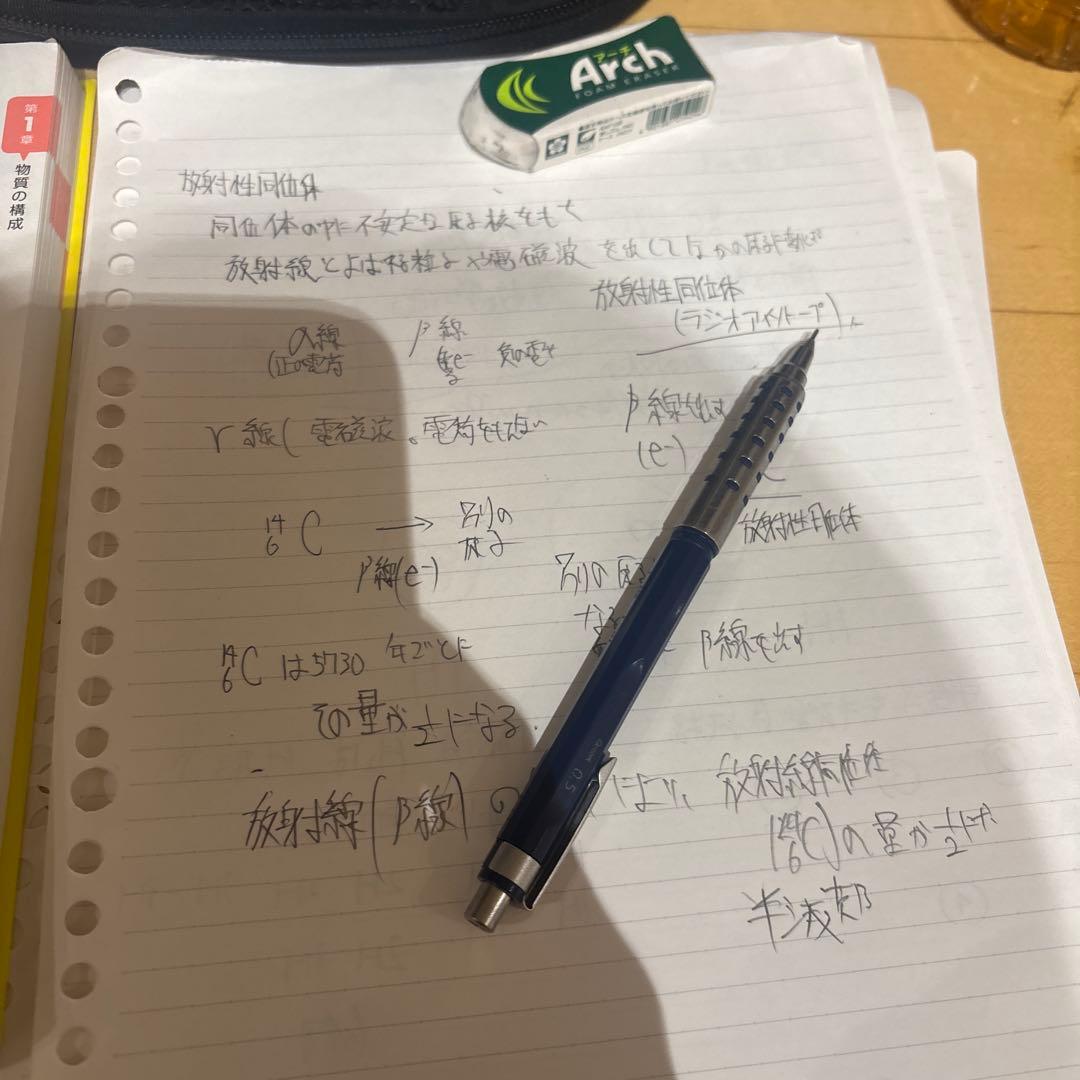 第
1
章
物質の構成
アーチ
Arch
FOAM ERASER
放射性同位体
同位体の中に不安定な原子核をもち
放射線とよばれる粒子や電磁波を出して
放射性同位体
(ラジオアイソトープ)
α線
(正の電荷
β線
e-
負の電荷
γ線(電磁波。電荷をもたない
β線を出す
(e-)
14
6 C → 別の
原子
β線(e-)
放射性同位体
別の
なる
14
6 C は5730 年ごとに
その量が 1/2 になる.
β線を出す
放射線(β線)の
により、放射線同位体
(14
6 C)の量が 1/2 に
半減期
0.5